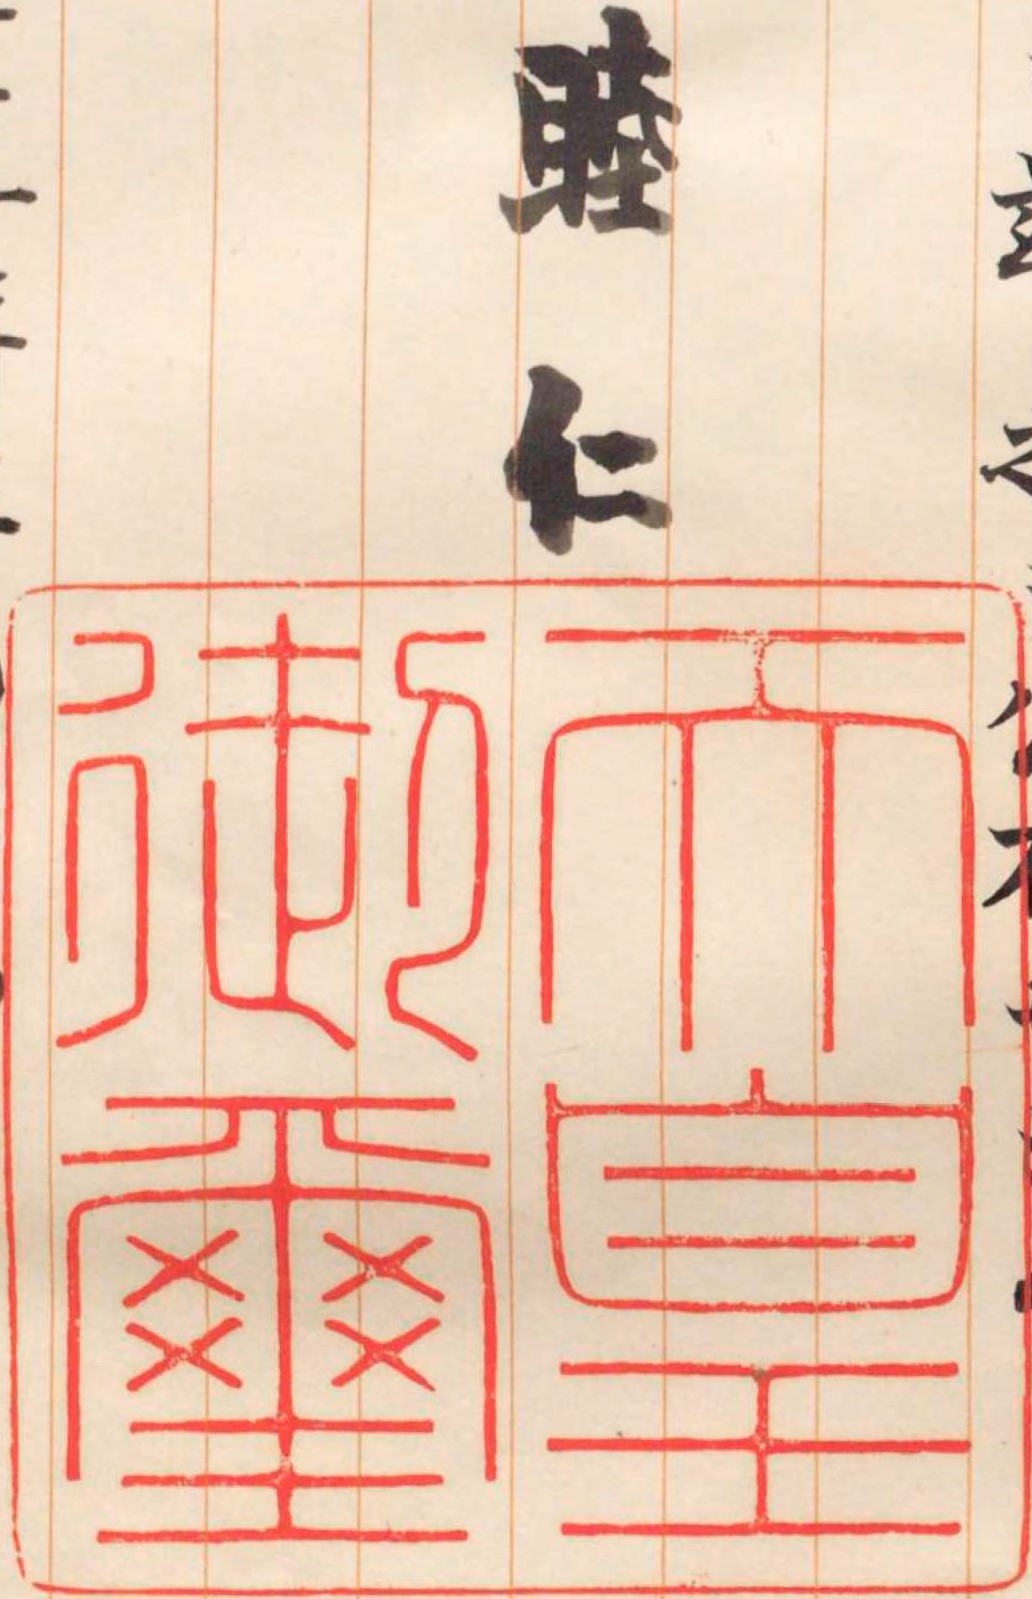 睦仁
天皇
御璽